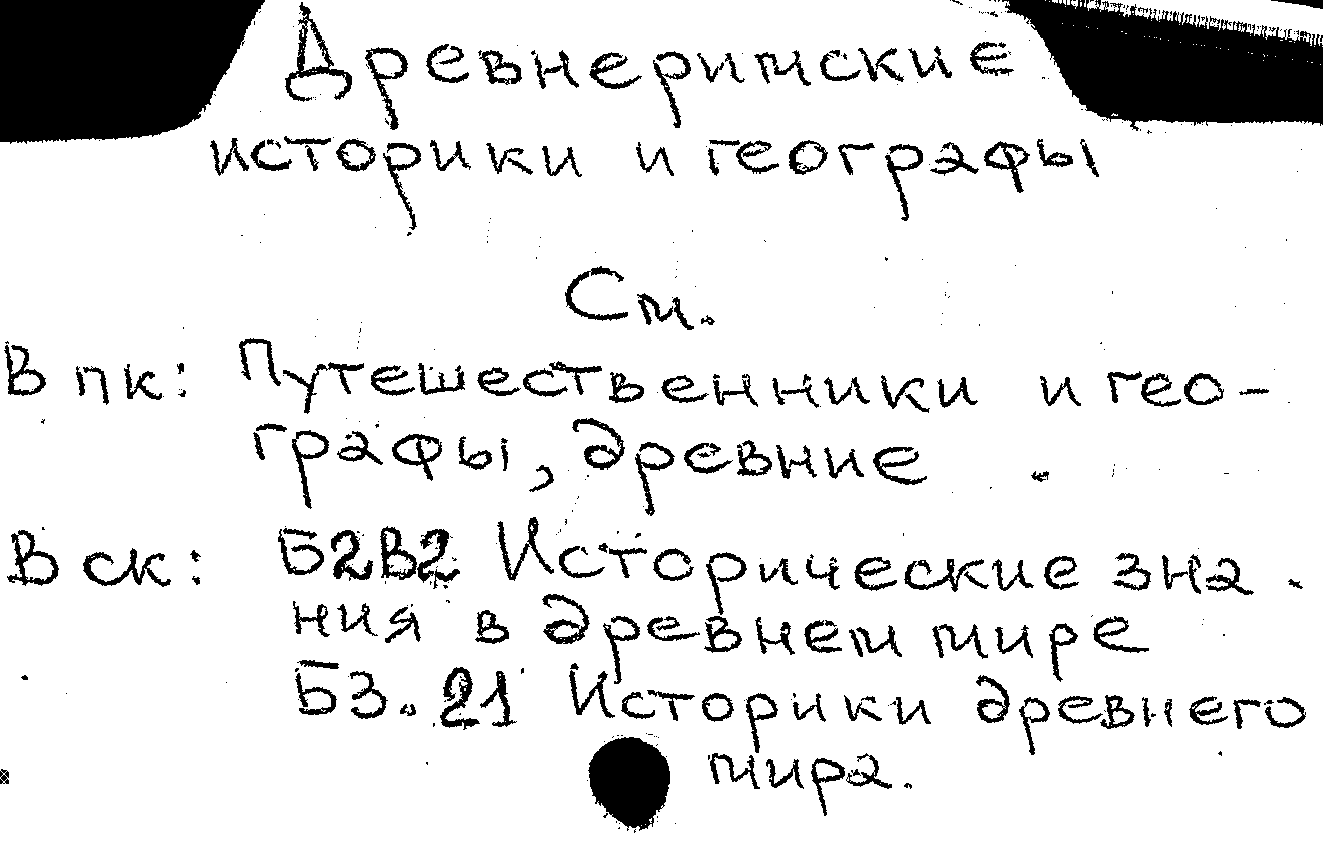 Древнеримские
историки и географы
См.
В пк: Путешественники и гео-
графы, древние .
В ск: Б2В2 Исторические зна-
ния в древнем мире
Б3.21 Историки древнего
мира.